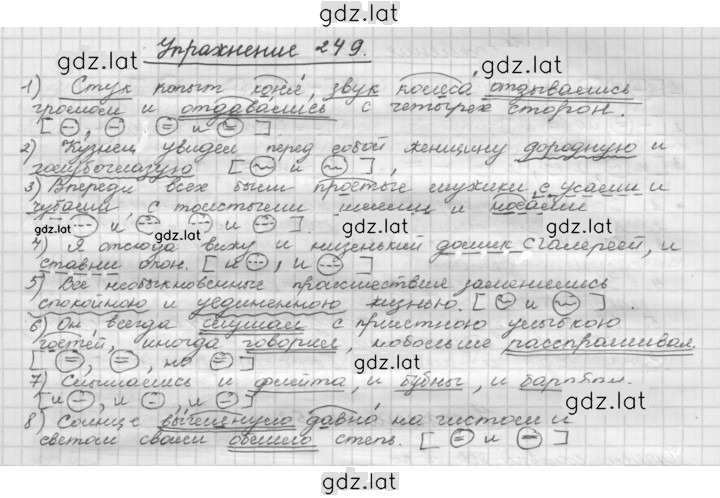 gdz.lat
Упражнение 249.
gdz.lat
gdz.lat
1) Стук копыт коня, звук колеса отзывались
громом и отдавались с четырёх сторон.
[⊖, ⊖ ⊜ и ⊜].
2) Кузнец увидел перед собой женщину дородную и
голубоглазую [ и ],
3) Впереди всех были простые мужики с усами и
чубами с толстыми шеями и носами
gdz.lat
gdz.lat
и и ].
4) Я отсюда вижу и низенький домик с галереей, и
ставни окон. [и , и ]
5) Все необыкновенные происшествия заменились
спокойною и уединенною жизнью. [ и ]
gdz.lat
6) Он всегда слушал с приятною улыбкою
гостей, иногда говорил, но больше расспрашивал.
[⊜, ⊜, но ⊜]
gdz.lat
7) Слышались и флейта, и бубны, и барабан.
[и ⊖, и ⊖, и ⊖]
gdz.lat
8) Солнце выглянуло давно на чистом и
светом своим облило степь. [⊜ и ]
gdz.lat